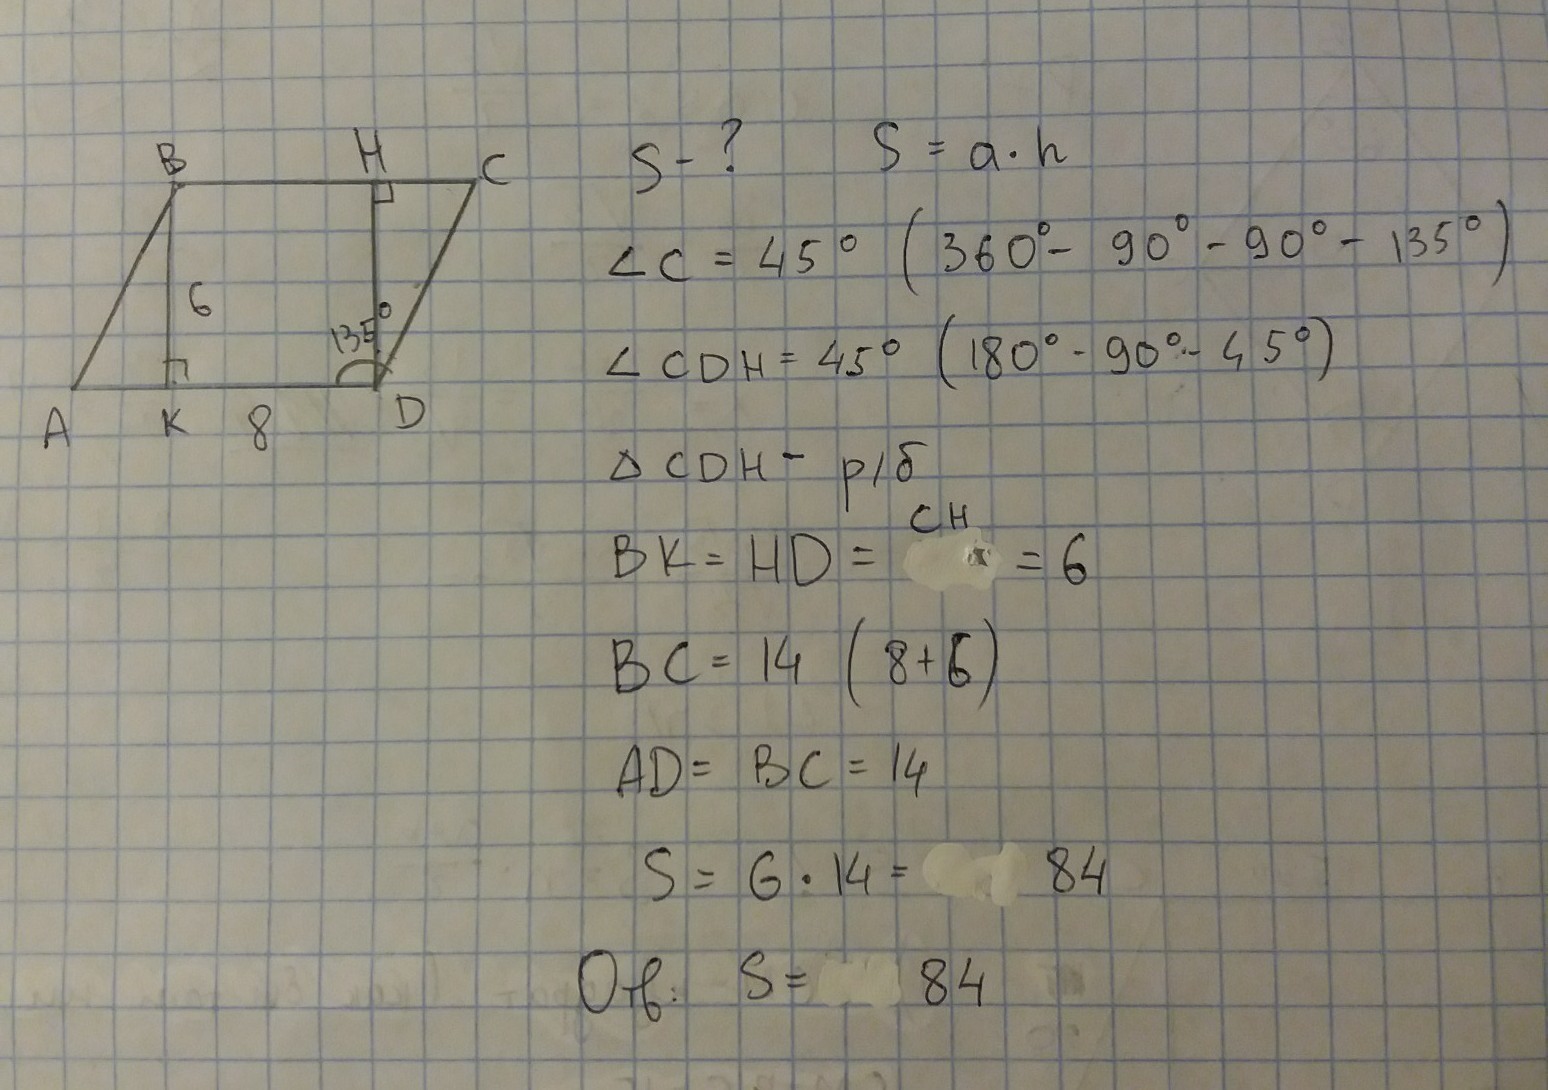 B H C
6
135°
A K 8 D
S - ? S = a · h
∠C = 45° (360° - 90° - 90° - 135°)
∠CDH = 45° (180° - 90° - 45°)
Δ CDH - р/б
CH
BK = HD = = 6
BC = 14 (8+6)
AD = BC = 14
S = 6 · 14 = 84
Отв: S = 84